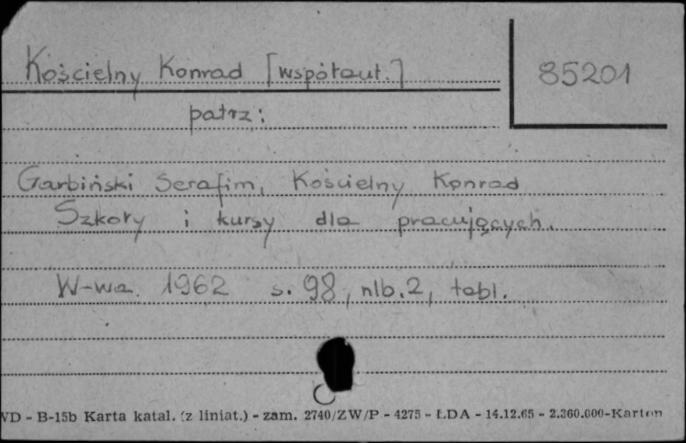 Kościelny Konrad [współaut.]
85201
patrz:
Garbiński Serafim, Kościelny Konrad
Szkoły i kursy dla pracujących.
W-wa. 1962 s. 98, nlb. 2, tabl.
VD - B-15b Karta katal. (z liniat.) - zam. 2740/ZW/P - 4275 - ŁDA - 14.12.65 - 2.360.000-Karton